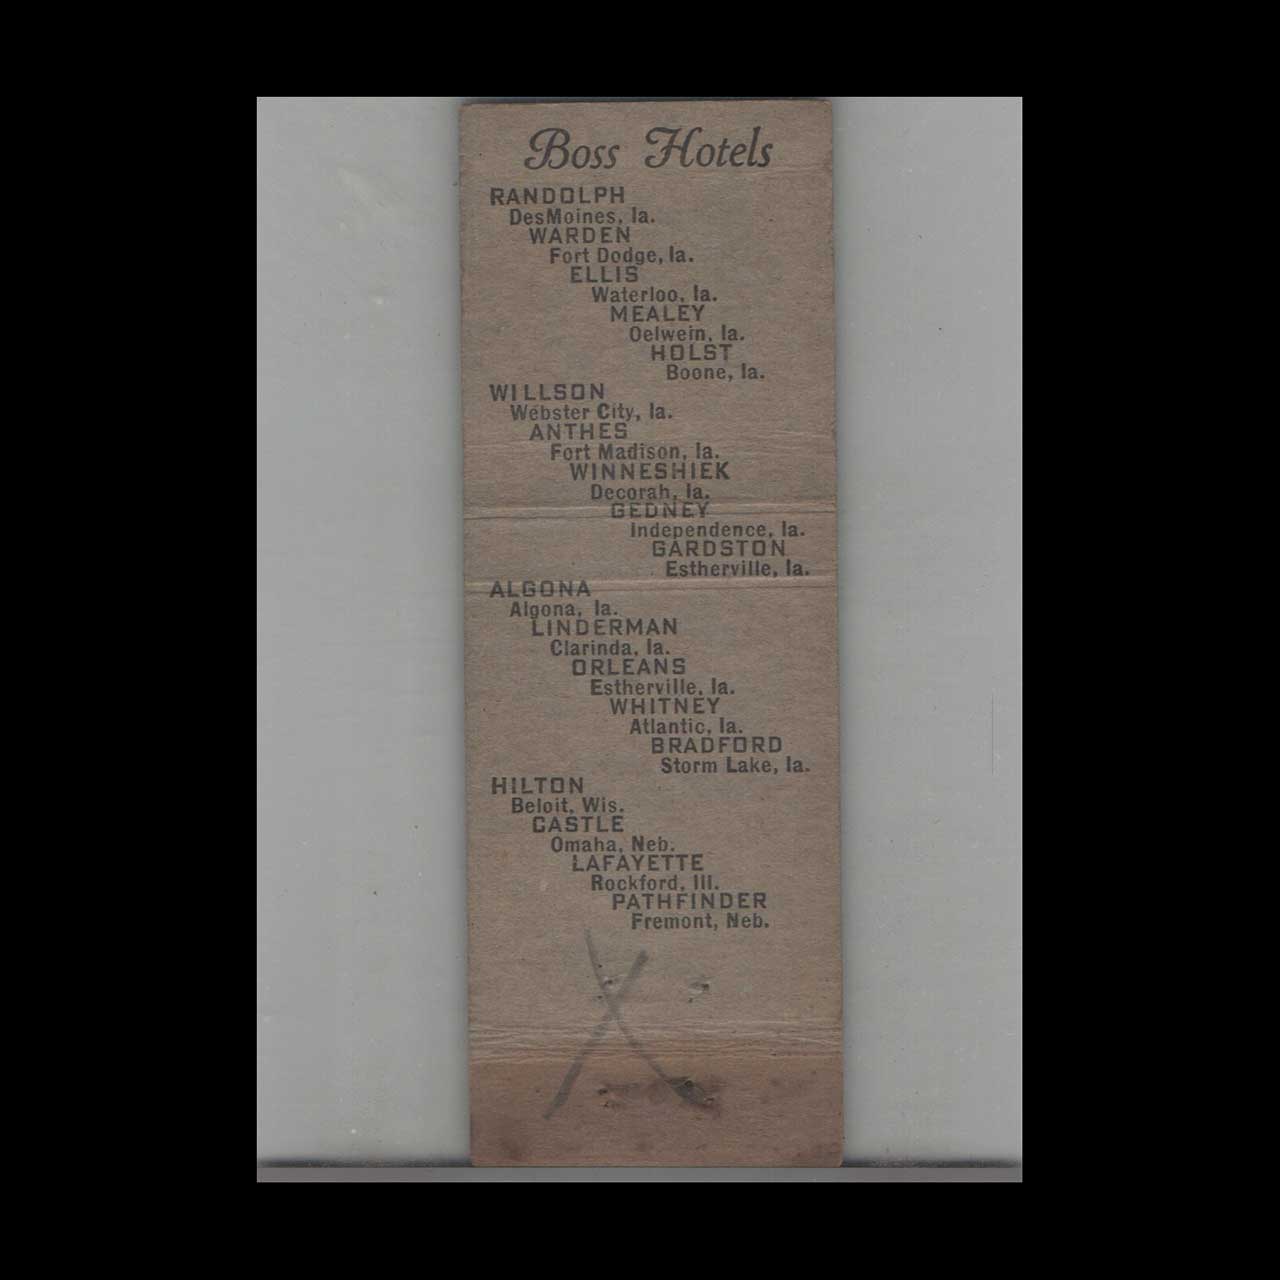 Boss Hotels
RANDOLPH
DesMoines, Ia.
WARDEN
Fort Dodge, Ia.
ELLIS
Waterloo, Ia.
MEALEY
Oelwein, Ia.
HOLST
Boone, Ia.
WILLSON
Webster City, Ia.
ANTHES
Fort Madison, Ia.
WINNESHIEK
Decorah, Ia.
GEDNEY
Independence, Ia.
GARDSTON
Estherville, Ia.
ALGONA
Algona, Ia.
LINDERMAN
Clarinda, Ia.
ORLEANS
Estherville, Ia.
WHITNEY
Atlantic, Ia.
BRADFORD
Storm Lake, Ia.
HILTON
Beloit, Wis.
CASTLE
Omaha, Neb.
LAFAYETTE
Rockford, Ill.
PATHFINDER
Fremont, Neb.